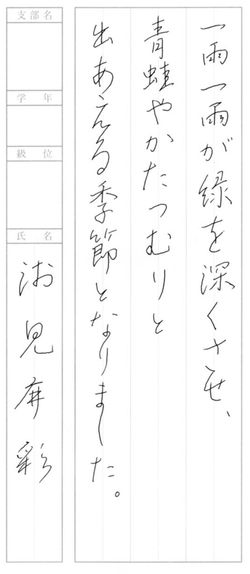 一雨一雨が緑を深くさせ、
青蛙やかたつむりと
出あえる季節となりました。
支部名
学年
級位
氏名
見
彩